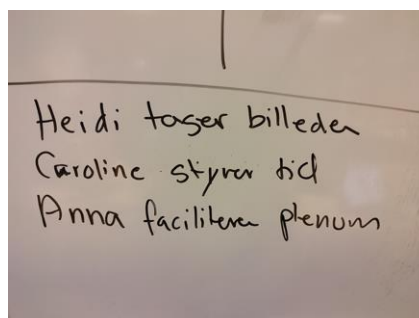 Heidi tager billeder
Caroline styrer tid
Anna faciliterer plenum